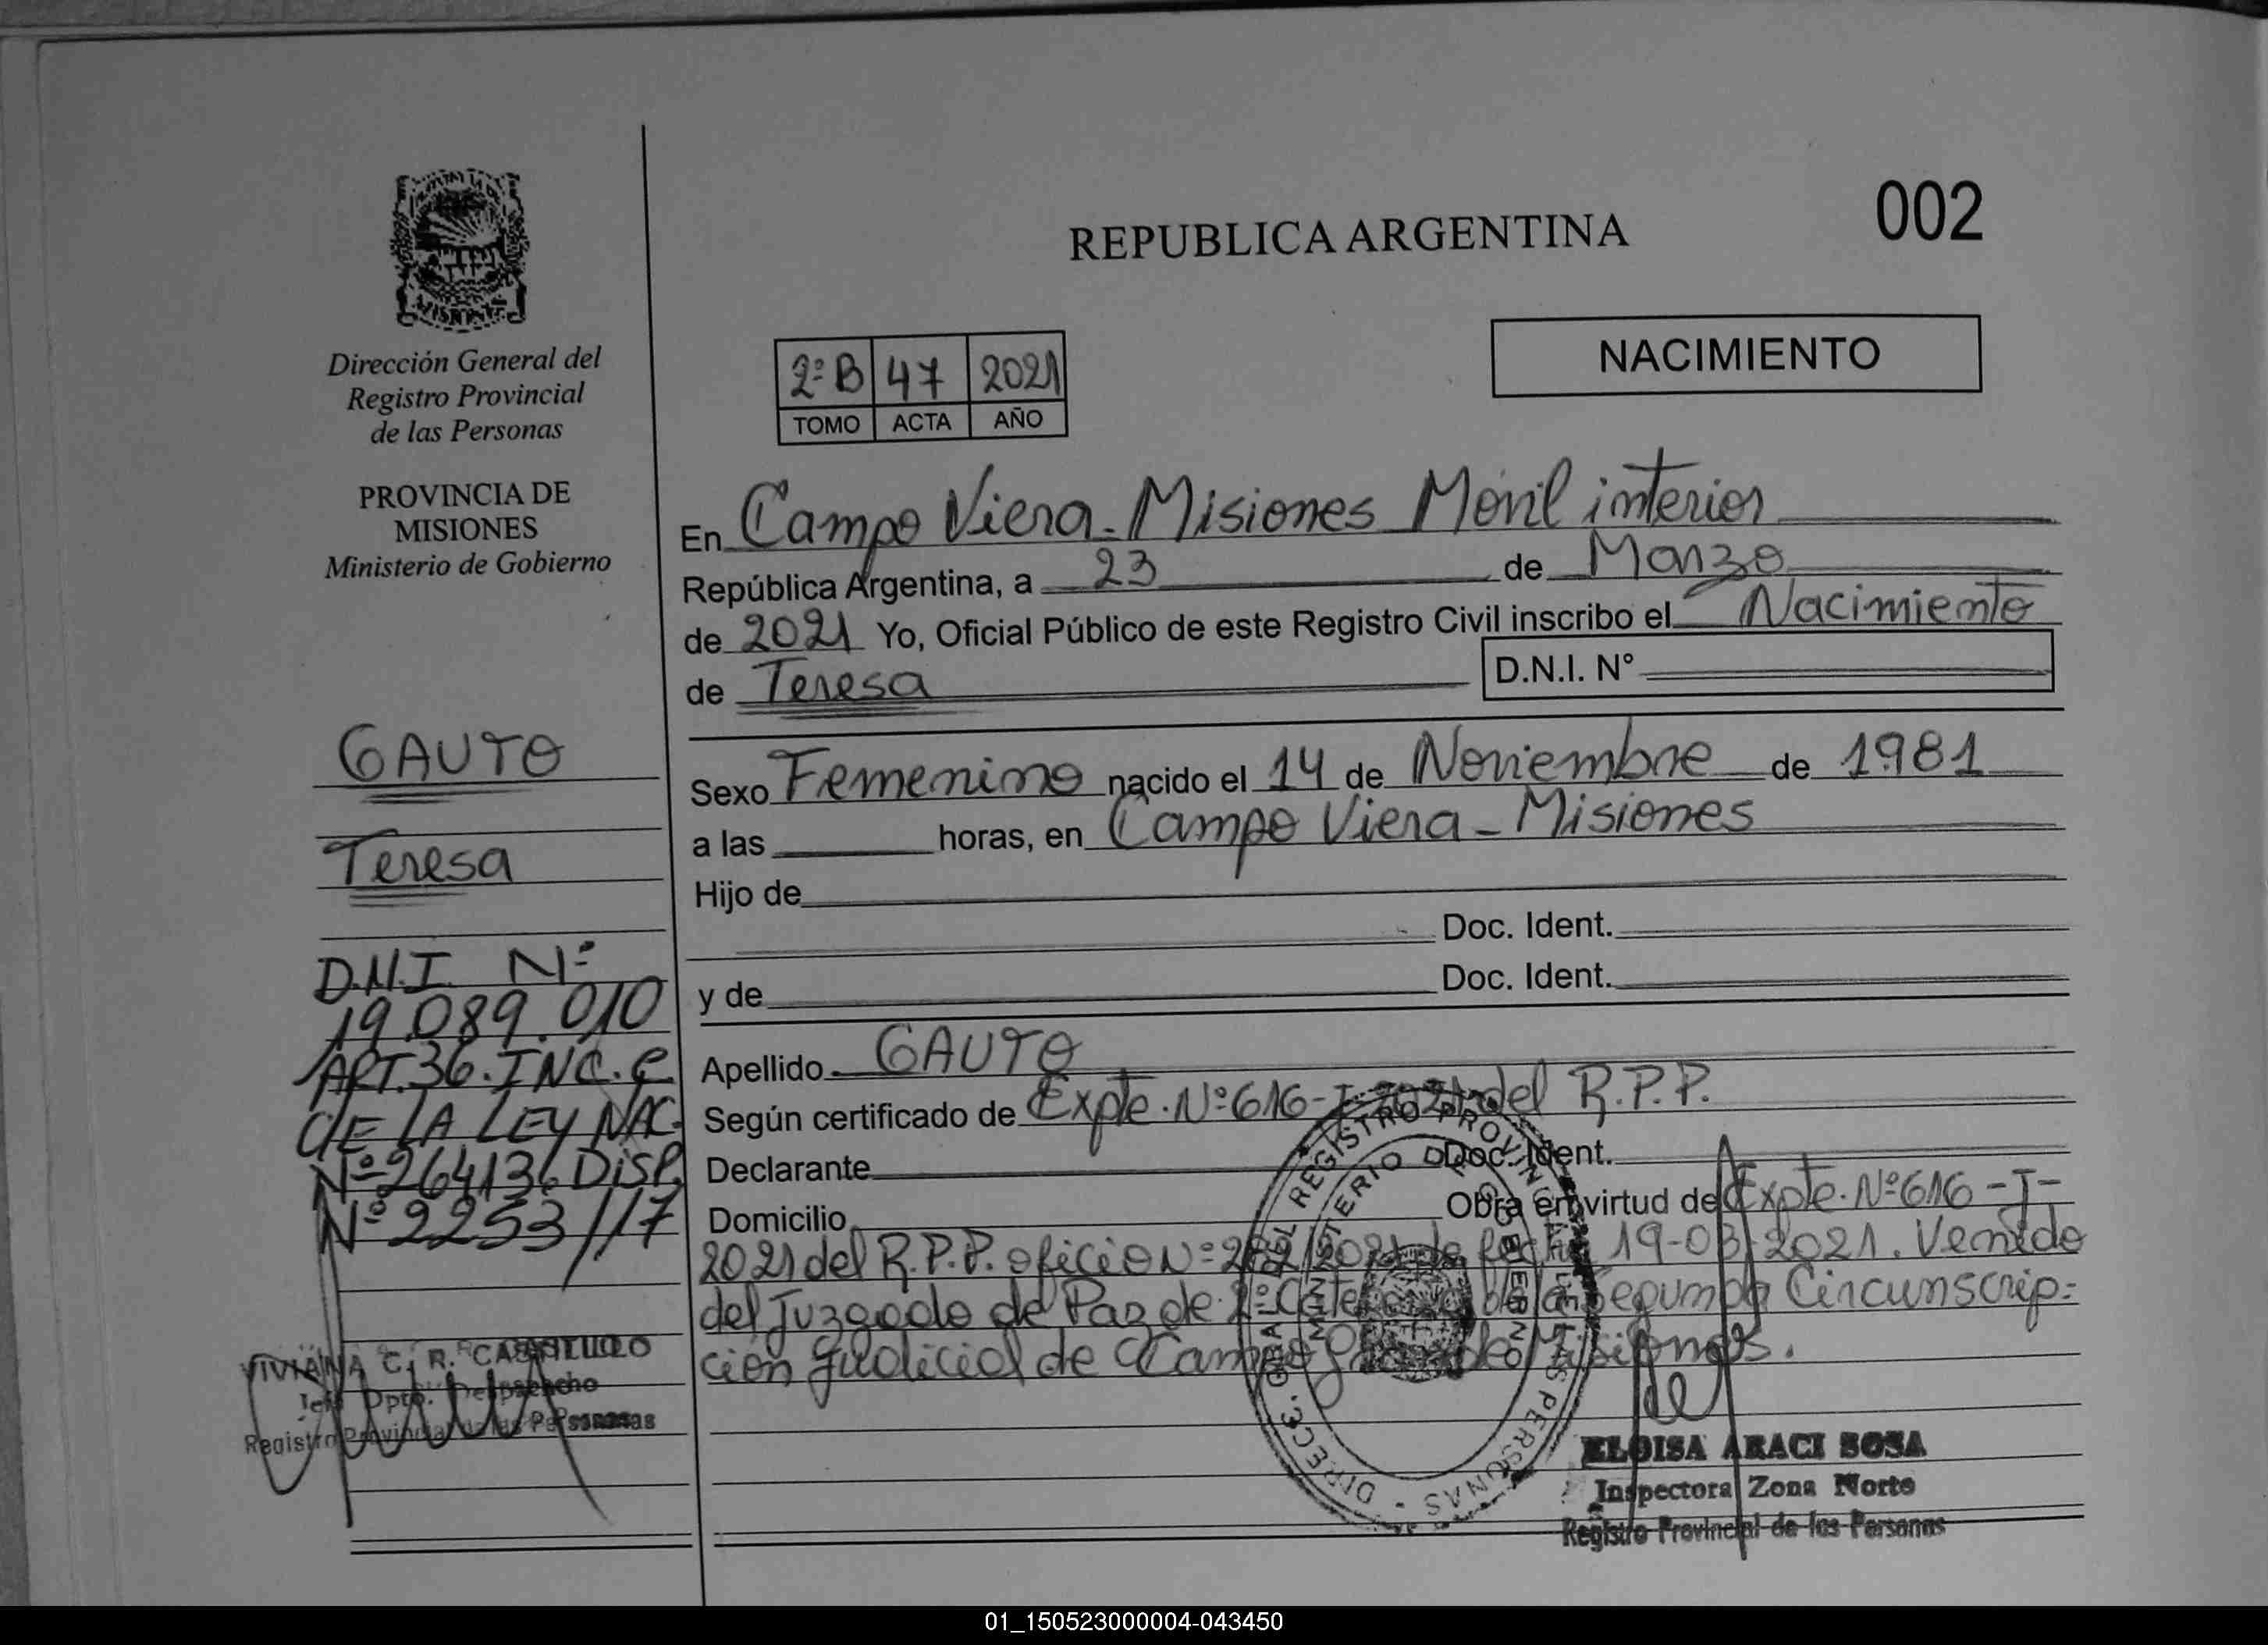 002
REPUBLICA ARGENTINA
NACIMIENTO
Dirección General del
Registro Provincial
de las Personas
PROVINCIA DE
MISIONES
Ministerio de Gobierno
2º B 47 2021
TOMO ACTA AÑO
En Campo Viera - Misiones Móvil interior
República Argentina, a 23 de Marzo
de 2021 Yo, Oficial Público de este Registro Civil inscribo el Nacimiento
de Teresa D.N.I. N°
GAUTO
Teresa
D.N.I. Nº
19.089.010
ART.36.INC.C
DE LA LEY NAC.
Nº26413 DISP.
Nº2253/17
Sexo Femenino nacido el 14 de Noviembre de 1981
a las horas, en Campo Viera - Misiones
Hijo de
Doc. Ident.
y de Doc. Ident.
Apellido GAUTO
Según certificado de Expte. Nº 616-T-2021 del R.P.P.
Declarante Doc. Ident.
Domicilio Obra en virtud de Expte. Nº616-T-
2021 del R.P.P. oficio Nº de fecha 19-03-2021. Venido
del Juzgado de Paz de 2º Categoria de la Segunda Circunscrip-
ción Judicial de Campo Misiones.
VIVIANA C. R. CASTILLO
Jefe Dpto. Despacho
Registro Provincial de las Personas
ELOISA ARACI SOSA
Inspectora Zona Norte
Registro Provincial de las Personas
01_150523000004-043450